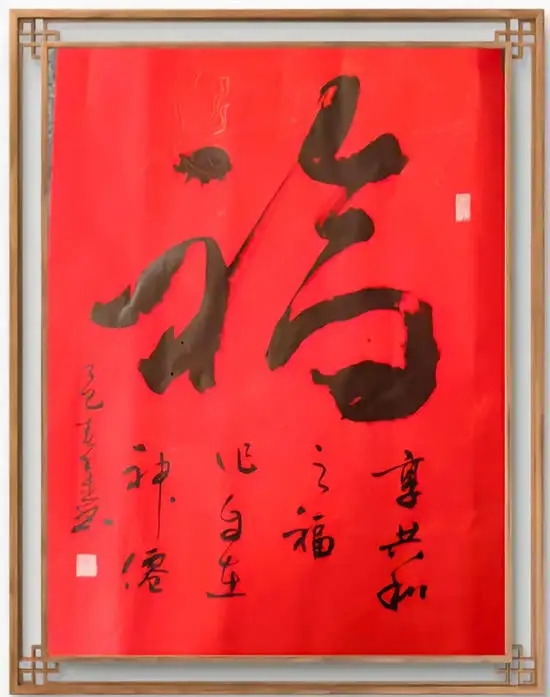 福
享共和
之福
作自在
神僊